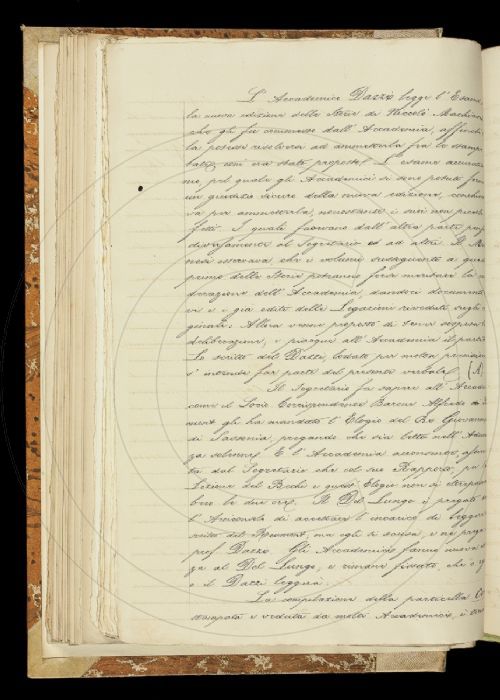 L'Accademico Dazzi legge l'Esame
la nuova edizione delle Storie di Niccolò Machiav
che gli fu commesso dall'Accademia, affinchè
la potesse risolversi ad ammetterla fra le stampe
come era stato proposto. L'esame accurati
mo, pel quale gli Accademici si sono potuti fare
un giudizio sicuro della nuova edizione,
va per ammetterla, nonostante i suoi non pochi
fetti. I quali furono dall'altra parte
al Segretario ed ad altri. Il
nesi osservava che i volumi susseguenti a questo
primo delle Storie potranno forse meritare la
dell'Accademia, documenti
vi e già editi delle Legazioni riveduti sugli
ginali. Allora venne proposto di tenere sospesa
deliberazione, e piacque all'Accademia il partito
Lo scritto del Dazzi, lodato per molta
s'intende far parte del presente verbale. (A)
Il Segretario fa sapere all'Accade
come il Socio Corrispondente Barone Alfredo
mont gli ha mandato l'Elogio del Re Giovanni
di Sassonia, pregando che sia letto nell'Adun
za solenne. E l'Accademia acconsente,
ta dal Segretario che col suo Rapporto,
Lezione del Bechi e questo Elogio non si
bero le due ore. Il Del Lungo è pregato
l'Arciconsolo di accettare l'incarico di leggere
scritto del Reumont, ma egli si scusa, e ne prega
prof. Dazzi. Gli Accademici fanno nuova
za al Del Lungo, e rimane fissato, che o
o il Dazzi leggerà.
La compilazione della particella
stampata e veduta da molti Accademici, è